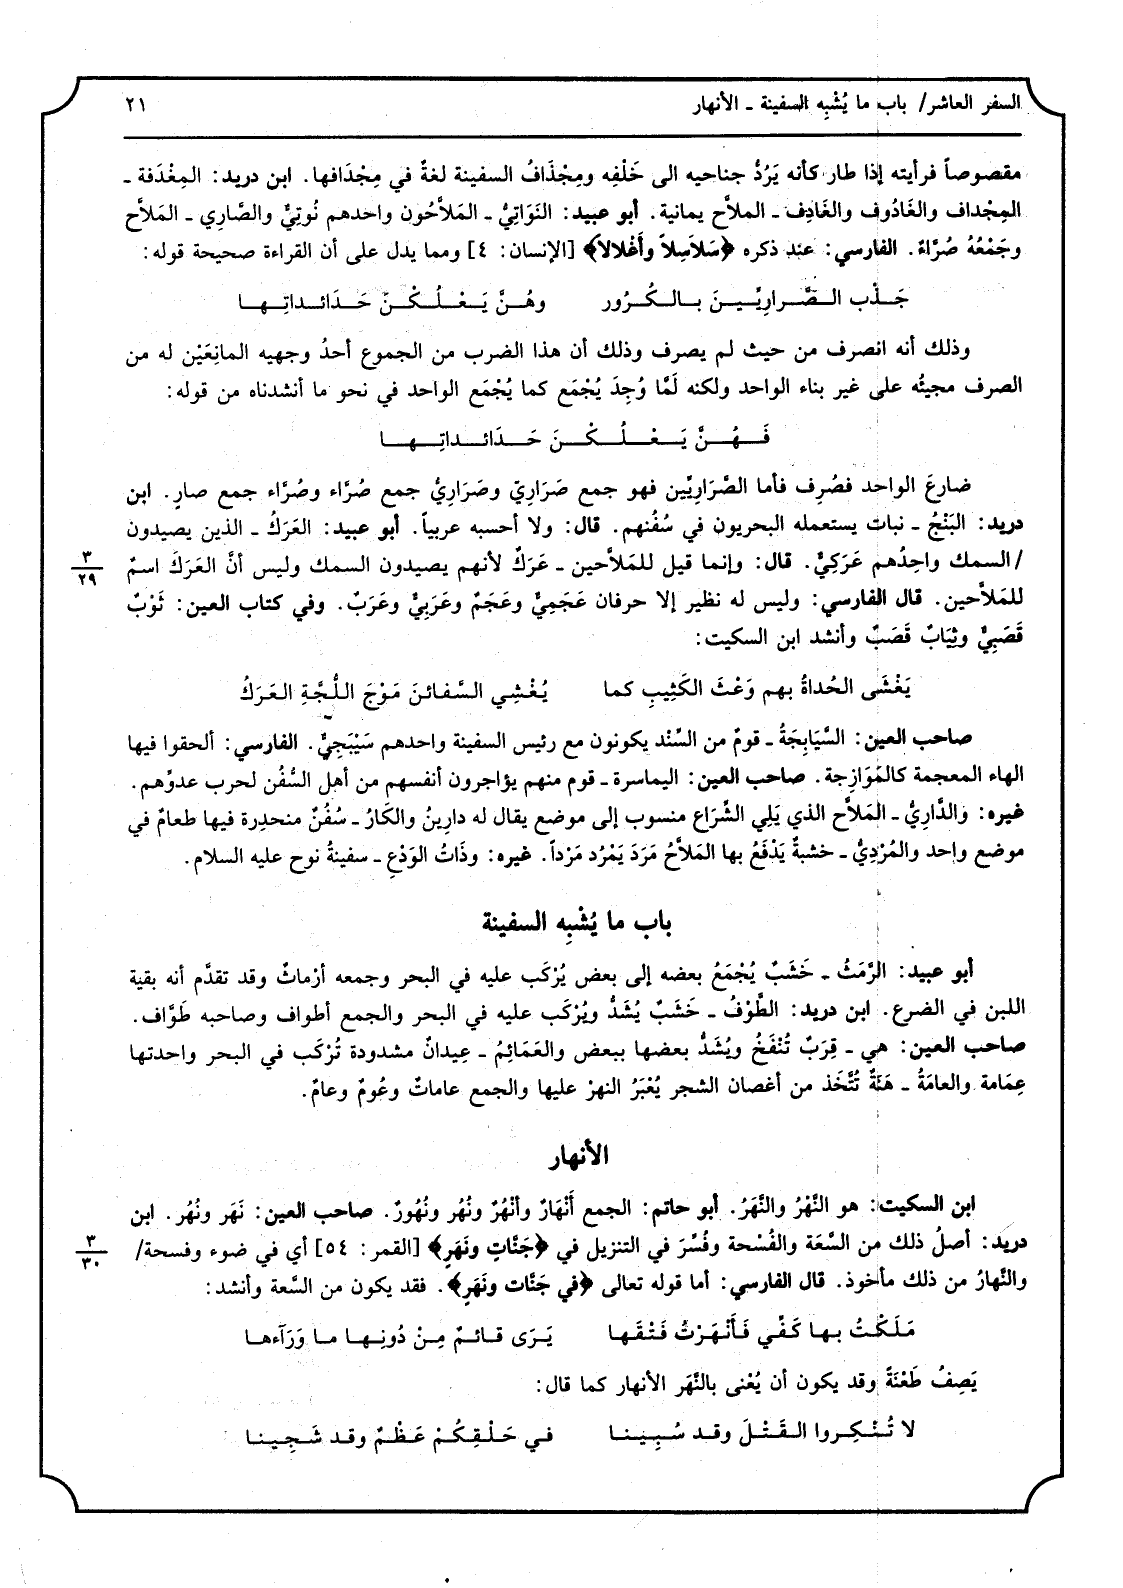 السفر العاشر/ باب ما يُشْبِه السفينة ـ الأنهار ٢١
مقصوصاً فرأيته إذا طار كأنه يَرُدُّ جناحيه الى خَلْفِه ومِجْذَافُ السفينة لغةٌ في مِجْدَافها. ابن دريد: المِغْدَفة ـ
المِجْداف والغَادُوف والغَادِف ـ الملاَّح يمانية. أبو عبيد: النَوَاتِيُّ ـ المَلاَّحُون واحدهم نُوتِيٌّ والصَّارِي ـ المَلاَّح
وجَمْعُهُ صُرَّاءٌ. الفارسي: عند ذكره ﴿سَلاَسِلاً وأَغْلالاً﴾ [الإنسان: ٤] ومما يدل على أن القراءة صحيحة قوله:
جَـذْب الـصَّـرارِيِّـيـنَ بـالـكُـرُور وهُـنَّ يَـعْـلُـكْـنَ حَـدَائـداتِـهـا
وذلك أنه انصرف من حيث لم يصرف وذلك أن هذا الضرب من الجموع أحدُ وجهيه المانِعَيْن له من
الصرف مجيئُه على غير بناء الواحد ولكنه لَمَّا وُجِدَ يُجْمَع كما يُجْمَع الواحد في نحو ما أنشدناه من قوله:
فَـهُـنَّ يَـعْـلُـكْـنَ حَـدَائـداتِـهـا
ضارعَ الواحد فصُرِف فأما الصَّرَارِيِّين فهو جمع صَرَارِيّ وصَرَارِيُّ جمع صُرَّاء وصُرَّاء جمع صارٍ. ابن
دريد: البَنْجُ ـ نبات يستعمله البحريون في سُفُنهم. قال: ولا أحسبه عربياً. أبو عبيد: العَرَكُ ـ الذين يصيدون
/السمك واحِدُهم عَرَكِيٌّ. قال: وإنما قيل للمَلاَّحين ـ عَرَكٌ لأنهم يصيدون السمك وليس أنَّ العَرَكَ اسمٌ ٣/٢٩
للمَلاَّحين. قال الفارسي: وليس له نظير إلا حرفان عَجَمِيٌّ وعَجَمٌ وعَرَبِيٌّ وعَرَبٌ. وفي كتاب العين: ثَوْبٌ
قَصَبِيٌّ وثِيَابٌ قَصَبٌ وأنشد ابن السكيت:
يَغْشَى الحُداةُ بهم وَعْثَ الكَثِيبِ كما يُغْشِي السَّفائنَ مَوْجَ اللُّجَّةِ العَرَكُ
صاحب العين: السَّيَابِجَةُ ـ قومٌ من السِّنْد يكونون مع رئيس السفينة واحدهم سَيْبَجِيٌّ. الفارسي: ألحقوا فيها
الهاء المعجمة كالمَوَازِجة. صاحب العين: اليماسرة ـ قوم منهم يؤاجرون أنفسهم من أهل السُّفُن لحرب عدوِّهم.
غيره: والدَّارِيُّ ـ المَلاَّح الذي يَلِي الشِّرَاع منسوب إلى موضع يقال له دارِينُ والكَارُ ـ سُفُنٌ منحدِرة فيها طعامٌ في
موضع واحد والمُرْدِيُّ ـ خشبةٌ يَدْفَعُ بها المَلاَّحُ مَرَدَ يَمْرُد مَرْداً. غيره: وذَاتُ الوَدْعِ ـ سفينةُ نوح عليه السلام.
باب ما يُشْبِه السفينة
أبو عبيد: الرَّمَثُ ـ خَشَبٌ يُجْمَعُ بعضه إلى بعض يُرْكَب عليه في البحر وجمعه أرْماثٌ وقد تقدَّم أنه بقية
اللبن في الضرع. ابن دريد: الطَّوْفُ ـ خَشَبٌ يُشَدُّ ويُرْكَب عليه في البحر والجمع أطواف وصاحبه طَوَّاف.
صاحب العين: هي ـ قِرَبٌ تُنْفَخُ ويُشَدُّ بعضها ببعض والعَمَائِمُ ـ عِيدانٌ مشدودة تُرْكَب في البحر واحدتها
عِمَامة والعامَةُ ـ هَنَةٌ تُتَّخَذ من أغصان الشجر يُعْبَرُ النهرُ عليها والجمع عاماتٌ وعُومٌ وعامٌ.
الأنهار
ابن السكيت: هو النَّهْرُ والنَّهَرُ. أبو حاتم: الجمع أَنْهَارٌ وأنْهُرٌ ونُهُر ونُهُورٌ. صاحب العين: نَهَر ونُهُر. ابن
دريد: أصلُ ذلك من السَّعَة والفُسْحة وفُسِّرَ في التنزيل في ﴿جَنَّاتٍ ونَهَرٍ﴾ [القمر: ٥٤] أي في ضوء وفسحة/ ٣/٣٠
والنَّهارُ من ذلك مأخوذ. قال الفارسي: أما قوله تعالى ﴿في جَنَّات ونَهَرٍ﴾. فقد يكون من السَّعة وأنشد:
مَـلَـكْـتُ بـهـا كَـفِّـي فَـأَنْـهَـرْتُ فَـتْـقَـهـا يَـرَى قـائـمٌ مِـنْ دُونِـهـا مـا وَرَآءهـا
يَصِفُ طَعْنَةً وقد يكون أن يُعْنى بالنَّهَر الأنهار كما قال:
لا تُـنْـكِـروا الـقَـتْـلَ وقـد سُـبِـيـنـا فـي حَـلْـقِـكُـمْ عَـظْـمٌ وقـد شَـجِـيـنـا